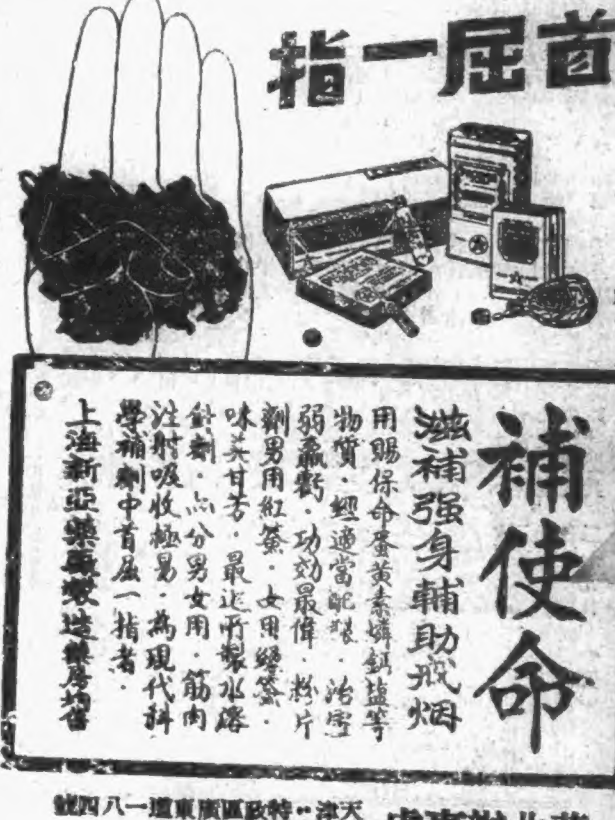 首屈一指
補使命
滋補强身輔助戒烟
用賜保命蛋黃素燐鈣塩等
物質·經適當配製·治虛
弱羸虧·功効最偉·粉片
劑男用紅簽·女用綠簽·
味美甘芳·最近所製水溶
針劑·亦分男女用·筋肉
注射吸收極易·為現代科
學補劑中首屈一指者·
上海新亞藥廠製造藥房均售
天津··特政區廣東道一八四號